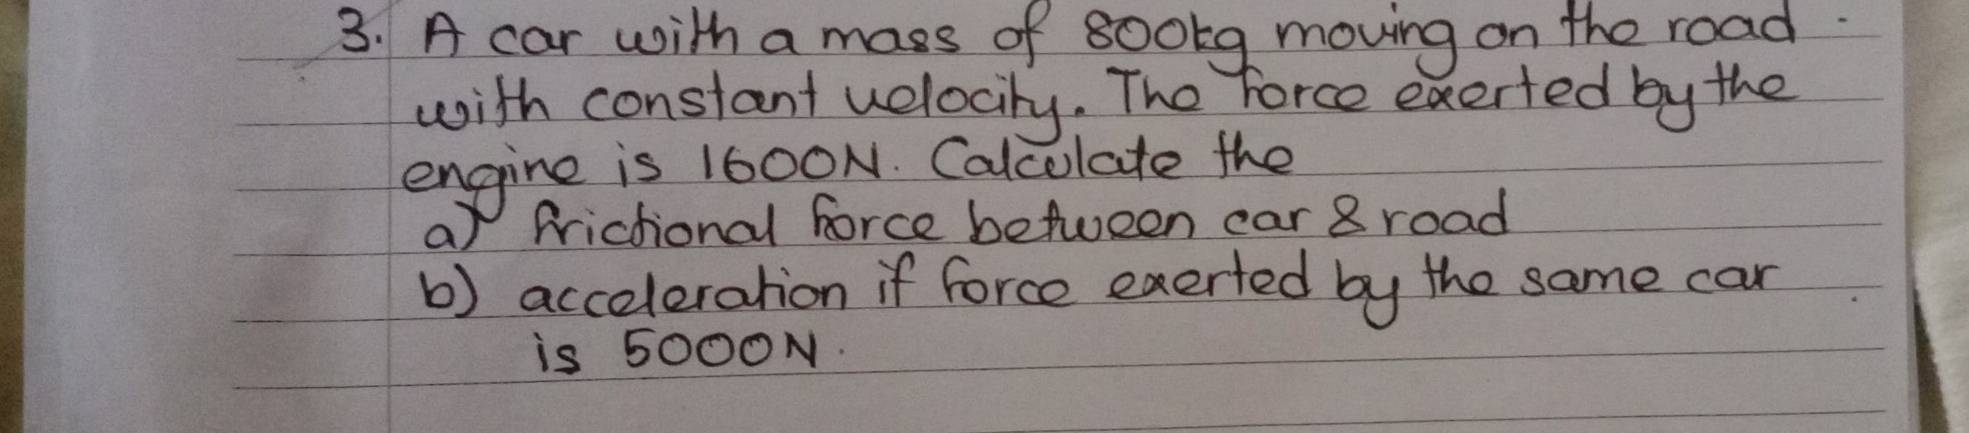 3. A car with a mass of 800kg moving on the road
with constant velocity. The force exerted by the
engine is 1600N. Calculate the
a) frictional force between car & road
b) acceleration if force exerted by the same car
is 5000N.